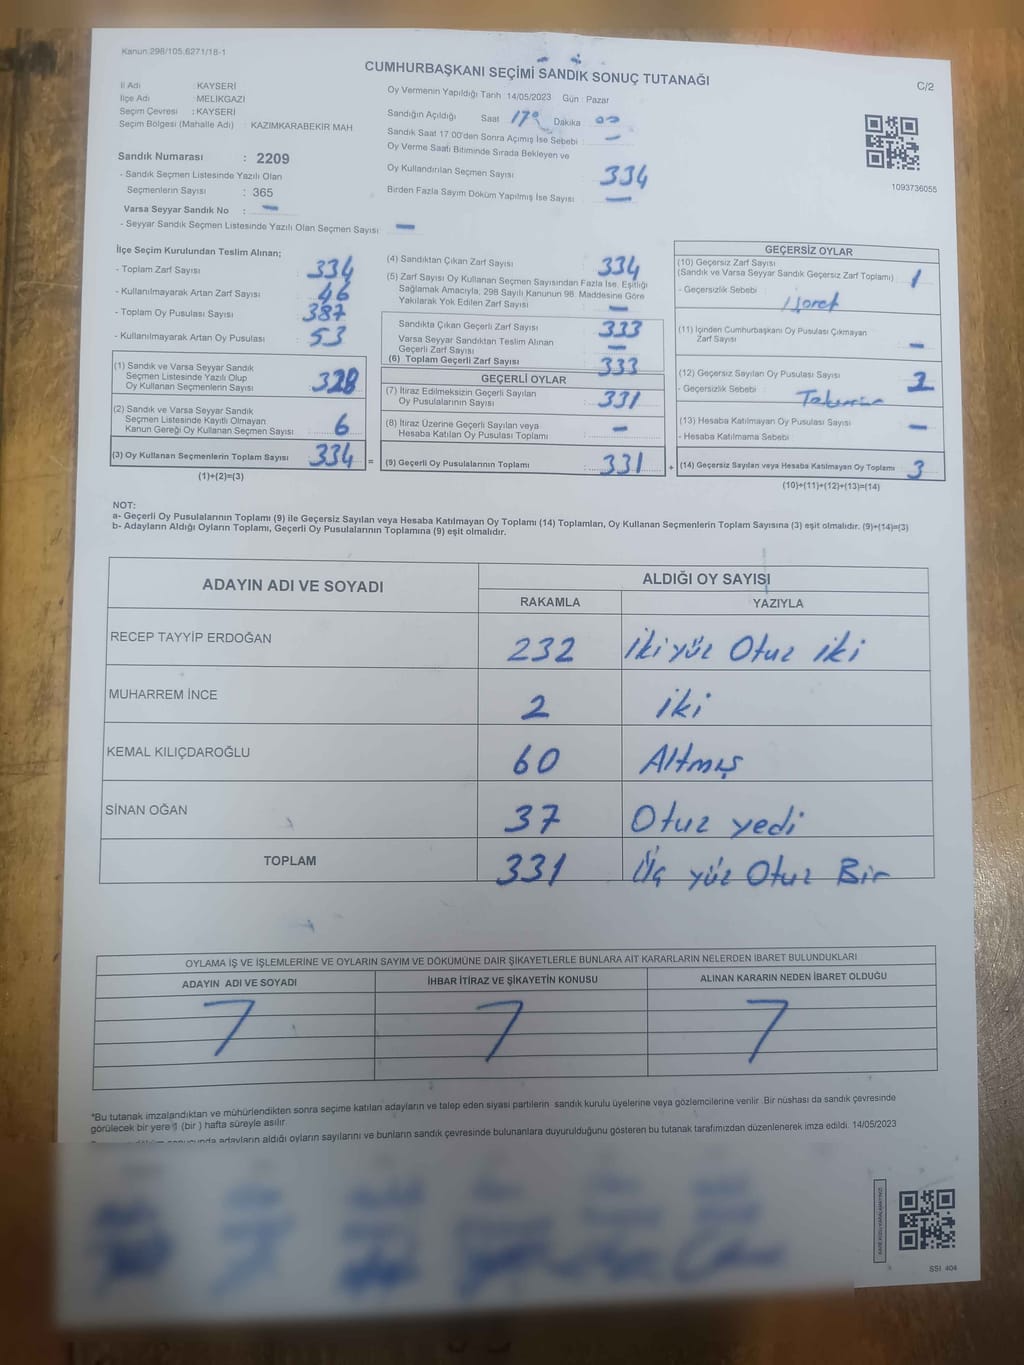 Kanun 298/105,6271/18-1
CUMHURBAŞKANI SEÇİMİ SANDIK SONUÇ TUTANAĞI
C/2
İl Adı : KAYSERİ
İlçe Adı : MELİKGAZİ
Seçim Çevresi : KAYSERİ
Seçim Bölgesi (Mahalle Adı) : KAZIMKARABEKİR MAH
Sandık Numarası : 2209
- Sandık Seçmen Listesinde Yazılı Olan
Seçmenlerin Sayısı : 365
Varsa Seyyar Sandık No : -
- Seyyar Sandık Seçmen Listesinde Yazılı Olan Seçmen Sayısı -
Oy Vermenin Yapıldığı Tarih :14/05/2023 Gün : Pazar
Sandığın Açıldığı Saat 17 Dakika
Sandık Saat 17.00'den Sonra Açılmış İse Sebebi : -
Oy Verme Saati Bitiminde Sırada Bekleyen ve
Oy Kullandırılan Seçmen Sayısı : 334
Birden Fazla Sayım Döküm Yapılmış İse Sayısı : -
1093736055
İlçe Seçim Kurulundan Teslim Alınan;
- Toplam Zarf Sayısı : 334
- Kullanılmayarak Artan Zarf Sayısı : 46
- Toplam Oy Pusulası Sayısı : 387
- Kullanılmayarak Artan Oy Pusulası : 53
(1) Sandık ve Varsa Seyyar Sandık
Seçmen Listesinde Yazılı Olup
Oy Kullanan Seçmenlerin Sayısı : 328
(2) Sandık ve Varsa Seyyar Sandık
Seçmen Listesinde Kayıtlı Olmayan
Kanun Gereği Oy Kullanan Seçmen Sayısı : 6
(3) Oy Kullanan Seçmenlerin Toplam Sayısı : 334 =
(1)+(2)=(3)
(4) Sandıktan Çıkan Zarf Sayısı : 334
(5) Zarf Sayısı Oy Kullanan Seçmen Sayısından Fazla İse, Eşitliği
Sağlamak Amacıyla, 298 Sayılı Kanunun 98. Maddesine Göre
Yakılarak Yok Edilen Zarf Sayısı : -
Sandıkta Çıkan Geçerli Zarf Sayısı : 333
Varsa Seyyar Sandıktan Teslim Alınan
Geçerli Zarf Sayısı : -
(6) Toplam Geçerli Zarf Sayısı : 333
GEÇERLİ OYLAR
(7) İtiraz Edilmeksizin Geçerli Sayılan
Oy Pusulalarının Sayısı : 331
(8) İtiraz Üzerine Geçerli Sayılan veya
Hesaba Katılan Oy Pusulası Toplamı : -
(9) Geçerli Oy Pusulalarının Toplamı : 331 +
GEÇERSİZ OYLAR
(10) Geçersiz Zarf Sayısı
(Sandık ve Varsa Seyyar Sandık Geçersiz Zarf Toplamı) : 1
- Geçersizlik Sebebi : İşaret
(11) İçinden Cumhurbaşkanı Oy Pusulası Çıkmayan
Zarf Sayısı : -
(12) Geçersiz Sayılan Oy Pusulası Sayısı : 2
- Geçersizlik Sebebi :
(13) Hesaba Katılmayan Oy Pusulası Sayısı : -
- Hesaba Katılmama Sebebi
(14) Geçersiz Sayılan veya Hesaba Katılmayan Oy Toplamı : 3
(10)+(11)+(12)+(13)=(14)
NOT:
a- Geçerli Oy Pusulalarının Toplamı (9) ile Geçersiz Sayılan veya Hesaba Katılmayan Oy Toplamı (14) Toplamları, Oy Kullanan Seçmenlerin Toplam Sayısına (3) eşit olmalıdır. (9)+(14)=(3)
b- Adayların Aldığı Oyların Toplamı, Geçerli Oy Pusulalarının Toplamına (9) eşit olmalıdır.
ADAYIN ADI VE SOYADI
ALDIĞI OY SAYISI
RAKAMLA YAZIYLA
RECEP TAYYİP ERDOĞAN 232 İki yüz Otuz iki
MUHARREM İNCE 2 iki
KEMAL KILIÇDAROĞLU 60 Altmış
SİNAN OĞAN 37 Otuz yedi
TOPLAM 331 Üç yüz Otuz Bir
OYLAMA İŞ VE İŞLEMLERİNE VE OYLARIN SAYIM VE DÖKÜMÜNE DAİR ŞİKAYETLERLE BUNLARA AİT KARARLARIN NELERDEN İBARET BULUNDUKLARI
ADAYIN ADI VE SOYADI İHBAR İTİRAZ VE ŞİKAYETİN KONUSU ALINAN KARARIN NEDEN İBARET OLDUĞU
7 7 7
*Bu tutanak imzalandıktan ve mühürlendikten sonra seçime katılan adayların ve talep eden siyasi partilerin sandık kurulu üyelerine veya gözlemcilerine verilir. Bir nüshası da sandık çevresinde
görülecek bir yere 1 (bir ) hafta süreyle asılır.
adayların aldığı oyların sayılarını ve bunların sandık çevresinde bulunanlara duyurulduğunu gösteren bu tutanak tarafımızdan düzenlenerek imza edildi. 14/05/2023
SSI 404